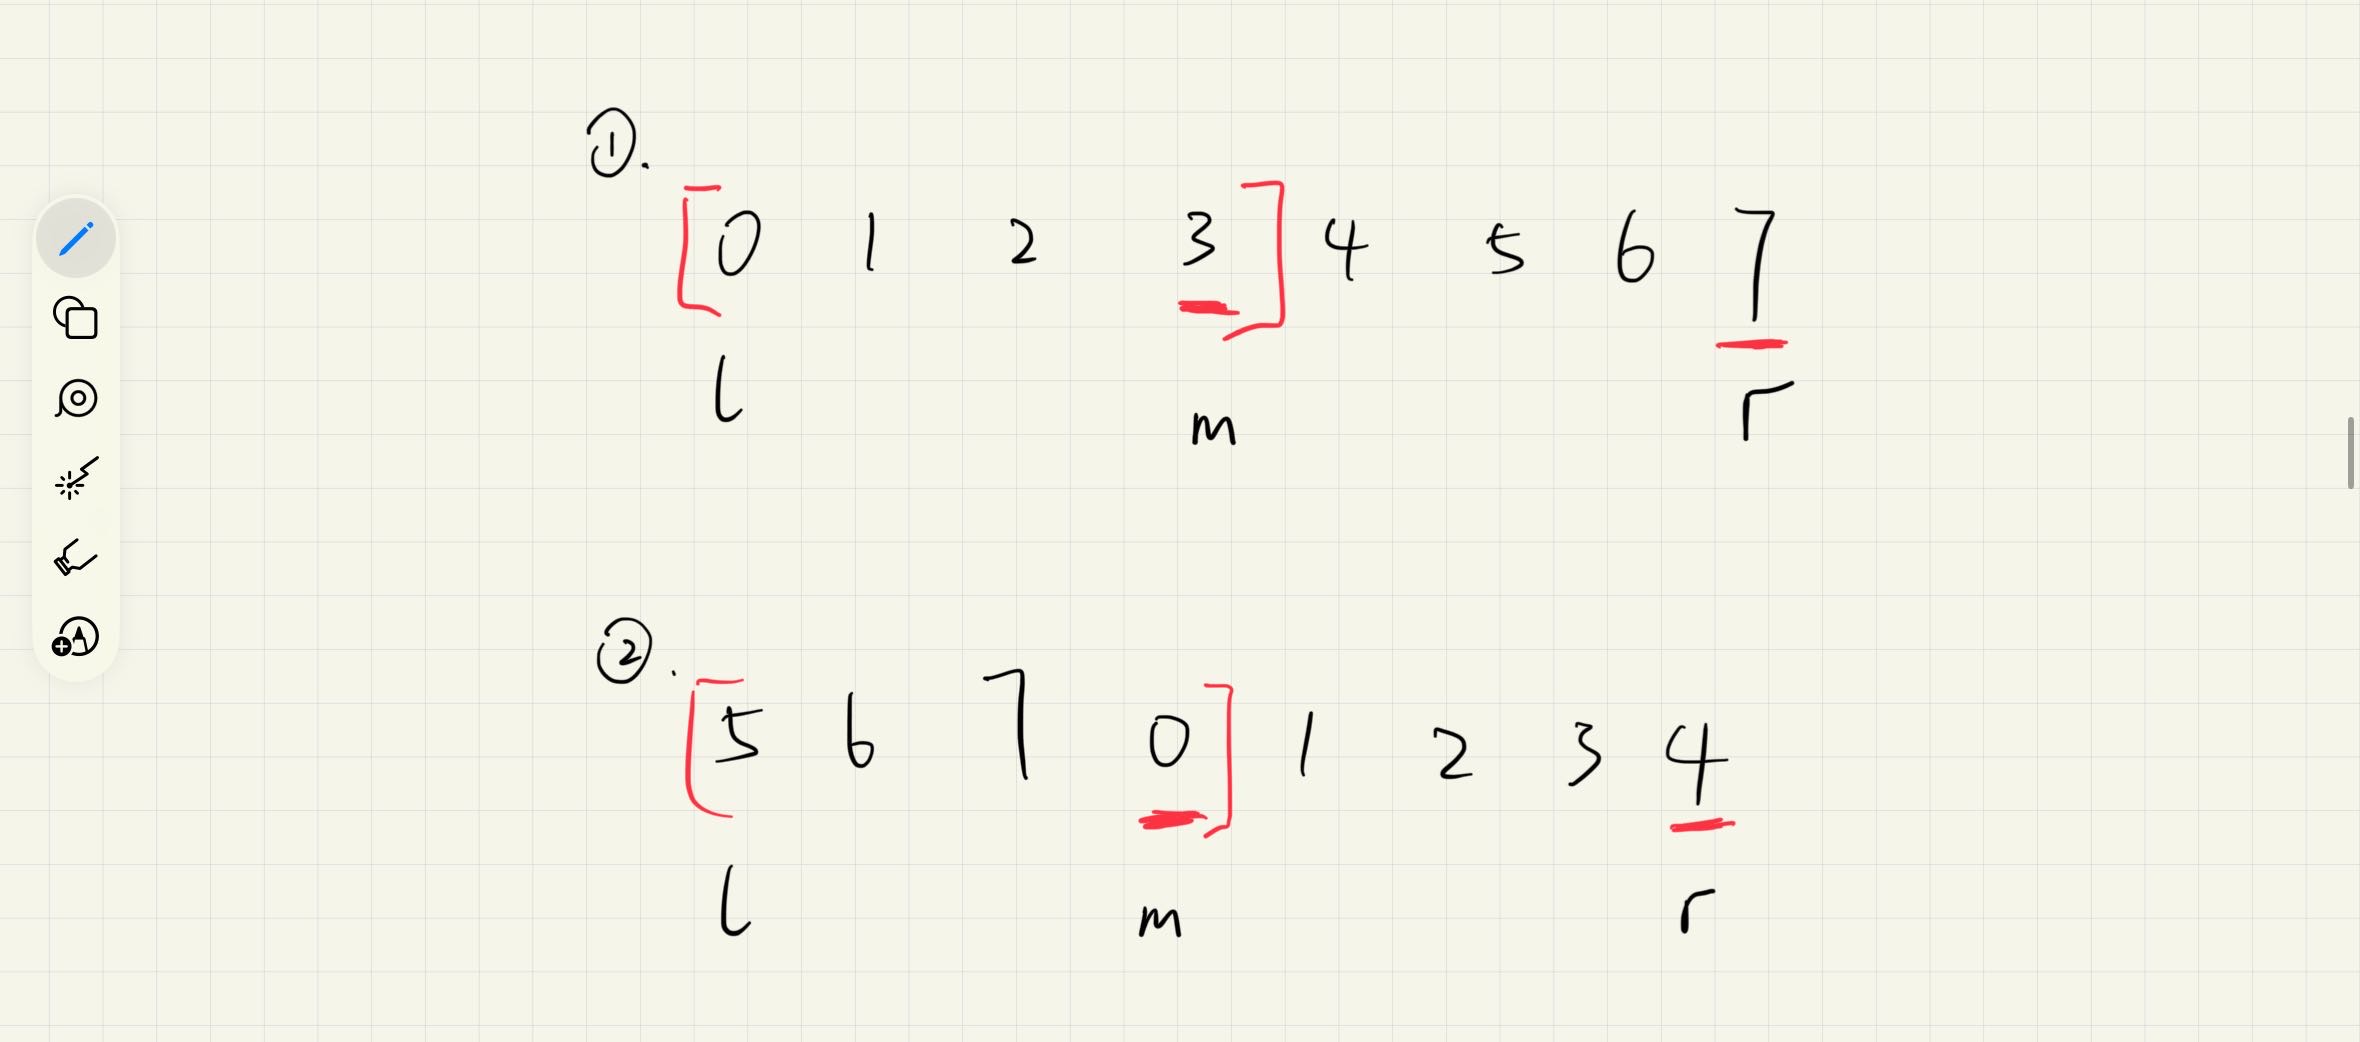 ①.
[0 1 2 3] 4 5 6 7
l m r
②.
[5 6 7 0] 1 2 3 4
l m r